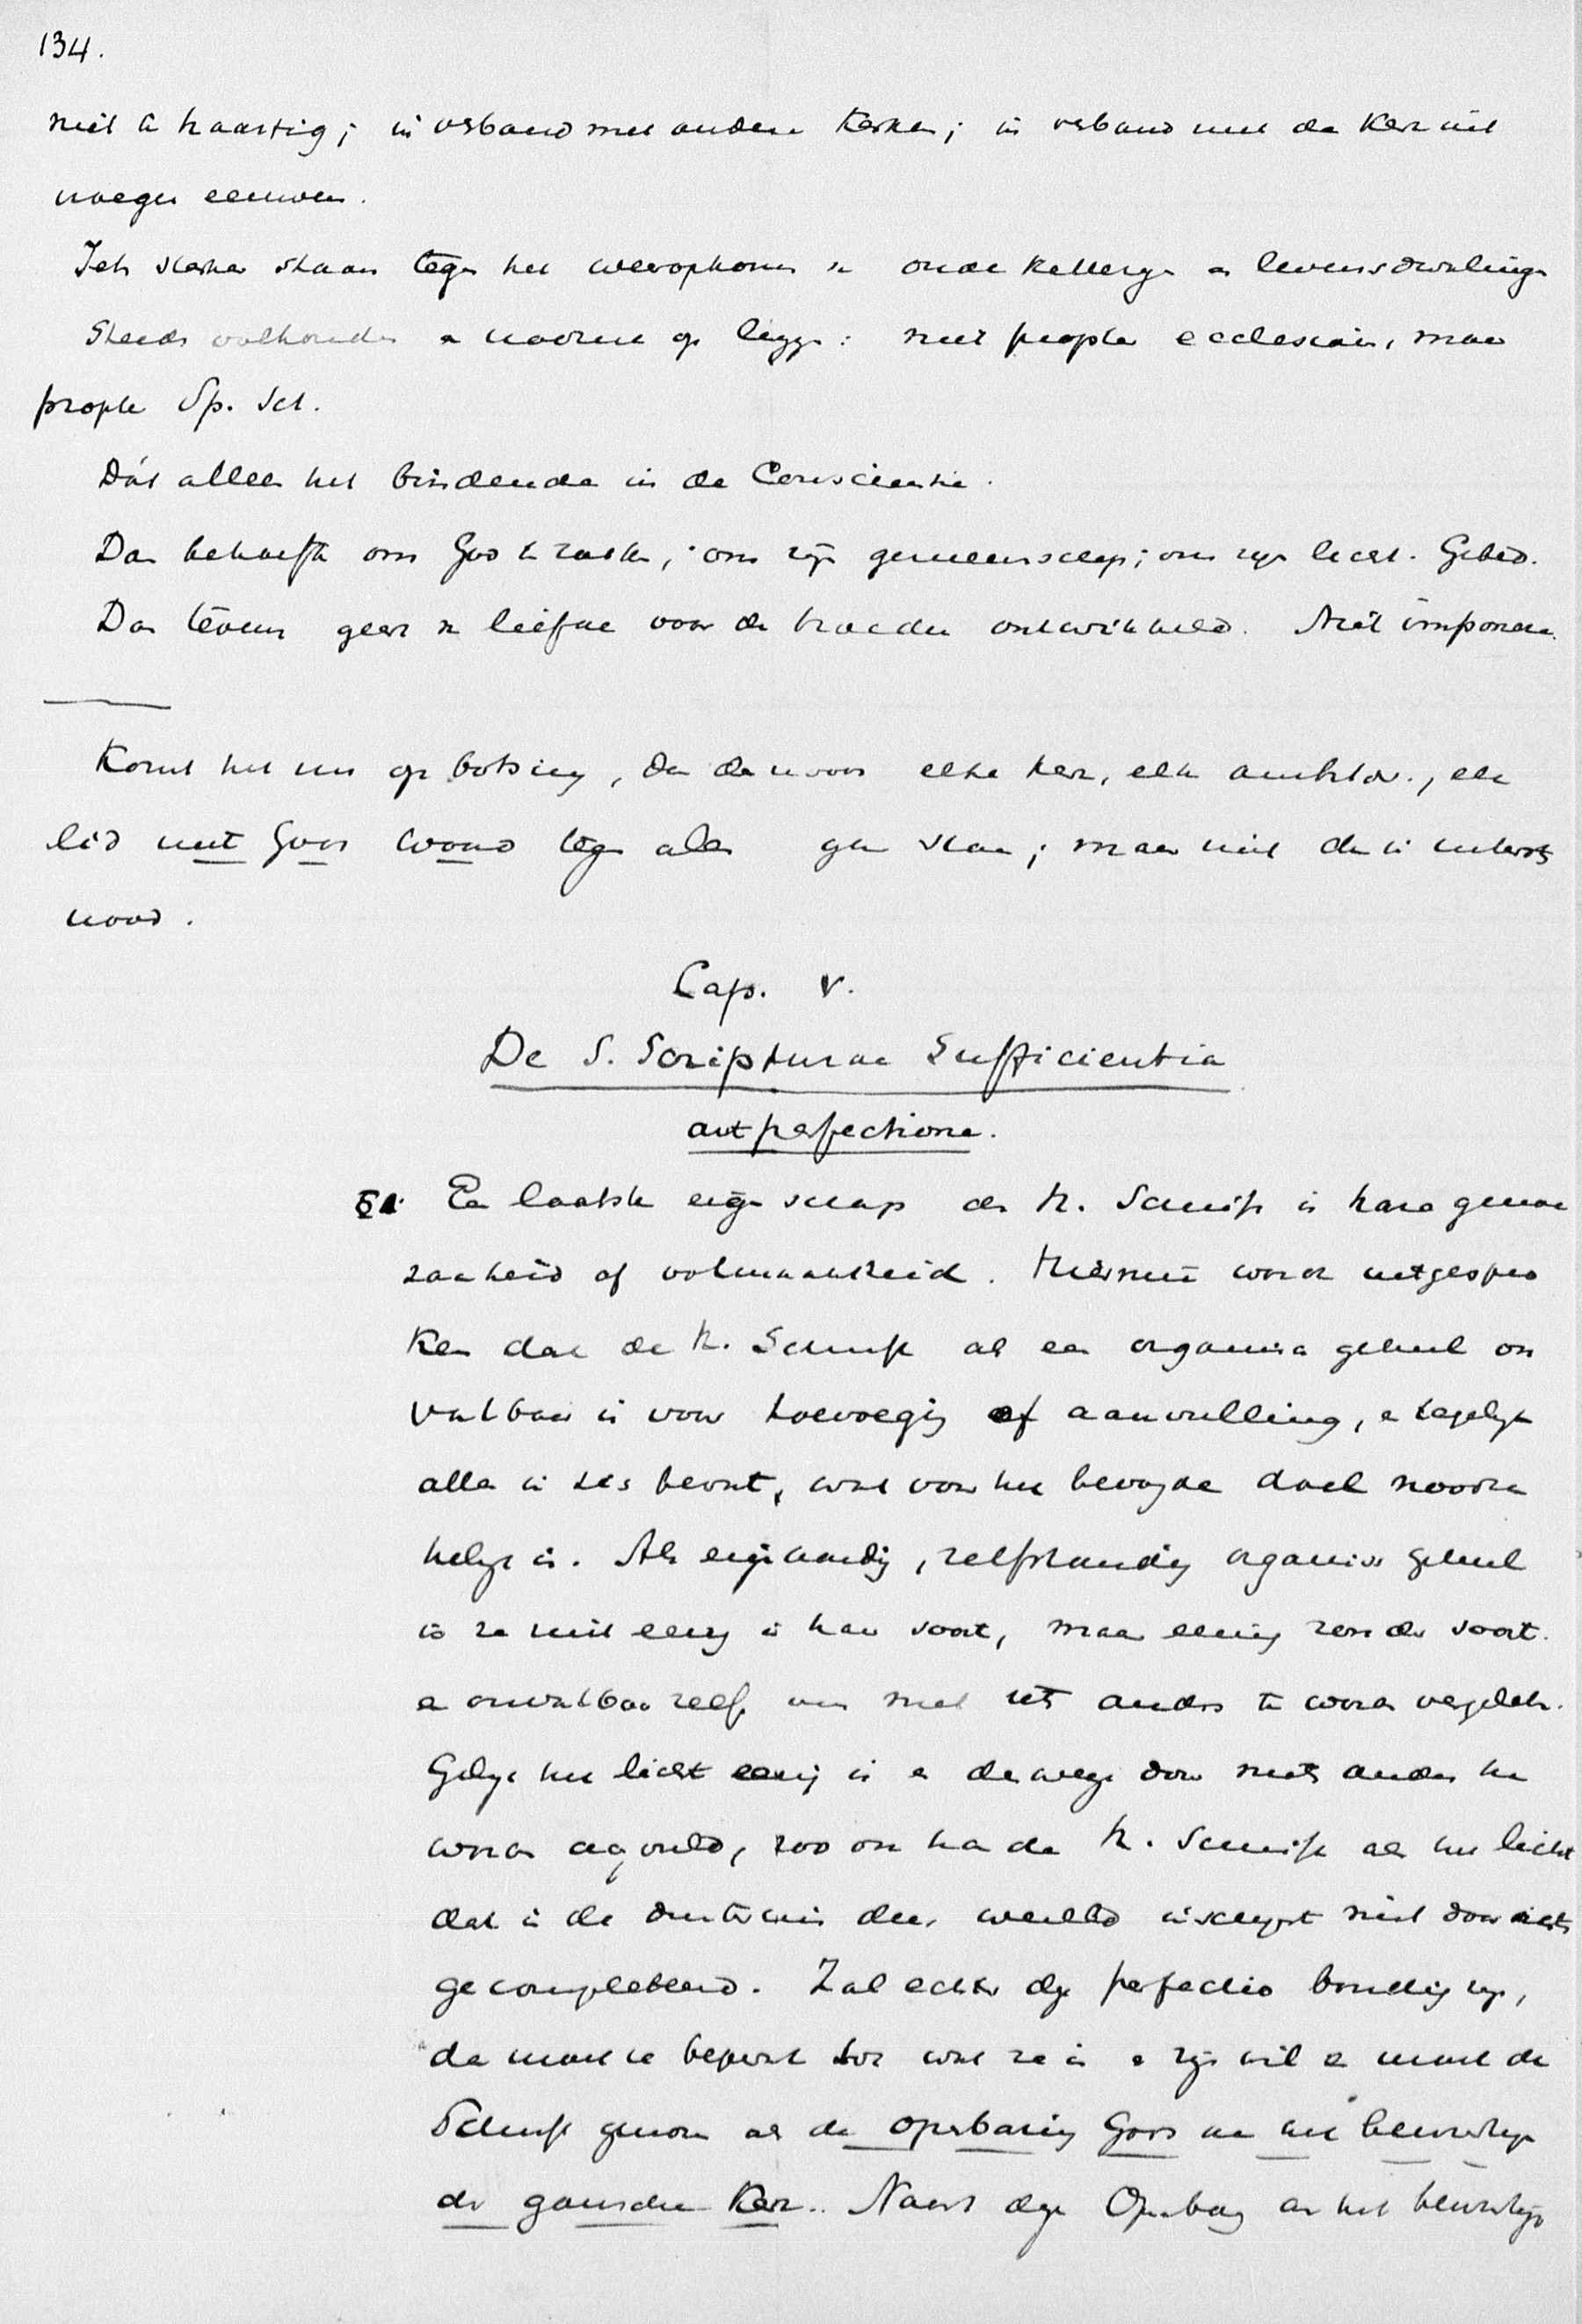 134.
niet te haastig; in verband met andere Kerken; in verband met de Kerk uit
vroeger eeuwen.
Iets sterker staan tegen het weeropkomen v. oude ketterijen en levensdwalingen
Steeds volhouden en nadruk op leggen: niet propter ecclesiam, maar
propter Sp. Sct.
Dát alleen het bindende in de Conscientie.
Dan behoefte om God te zoeken; om zijn gemeenschap; om zijn licht. Gebed.
Dan tevens geest v. liefde voor de broeders ontwikkeld. Niet imponeren.
Komt het nu op botsing, dan daarvoor elke kerk, elk ambtsdr., elk
lid met Gods Woord tegen allen gaan staan; maar niet dan in uiterste
nood.
Cap. V.
De S. Scripturae Sufficientia
aut perfectione.
§1. Een laatste eigenschap der H. Schrift is hare genoeg
zaamheid of volmaaktheid. Hiermeê wordt uitgespro
ken dat de H. Schrift als een organisch geheel on
vatbaar is voor toevoeging of aanvulling, en tegelijk
alles in zich bevat, wat voor het beoogde doel noodza
kelijk is. Als eigenaardig, zelfstandig organisch geheel
is ze niet eenig in haar soort, maar eenig zonder soort.
en onvatbaar zelf om met iets anders te worden vergeleken.
Gelijk het licht eenig is en deswege door niets anders kan
worden aangevuld, zoo ook kan de H. Schrift als het licht
dat in de duisternis dezer wereld inschijnt niet door iets
gecompleteerd. Zal echter deze perfectio bondig zijn,
dan moet ze beperkt tot wat ze is en zijn wil en moet de
Schrift genomen als de Openbaring Gods aan het bewustzijn
der gansche Kerk. Naast deze Openbaring aan het bewustzijn